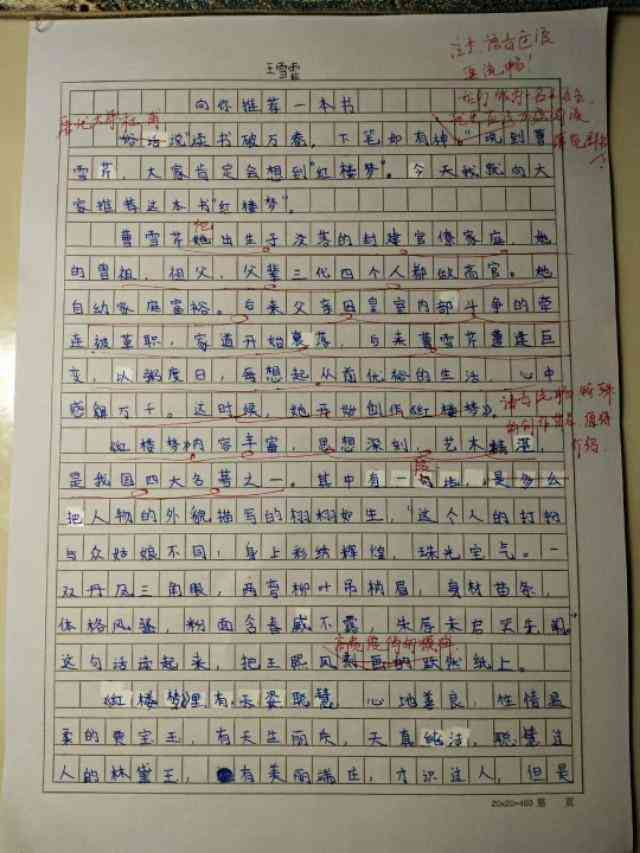 王雪霏
向你推荐一本书
俗话说"读书破万卷，下笔如有神。"说到曹
雪芹，大家肯定会想到"红楼梦"。今天我就向大
家推荐这本书"红楼梦"。
曹雪芹她出生于次落的封建官僚家庭，她
的曾祖，祖父，父辈三代四个人都做高官。她
自幼家庭富裕。后来父亲因皇室内部斗争的牵
连被革职，家道开始衰落，后来曹雪芹遭逢巨
变，以粥度日，每想起从前优裕的生活 心中
感慨万千。这时候，她开始创作《红楼梦》。
红楼梦内容丰富，思想深刻，艺术精湛，
是我国四大名著之一。其中有一句话，是多么
把人物的外貌描写的栩栩如生，"这个人的打扮
与众姑娘不同：身上彩绣辉煌，珠光宝气。一
双丹凤三角眼，两弯柳叶吊梢眉，身材苗条，
体格风骚，粉面含春威不露，朱唇未启笑先闻。
这句话读起来，把王熙凤刻画的跃然纸上。
《红楼梦》里有天姿聪慧 心地善良，性情温
柔的贾宝玉，有天生丽质，天真纯洁，聪慧过
人的林黛玉，有美丽端庄，才识过人，但是
20×20=400 第 页
注意语言
流畅！